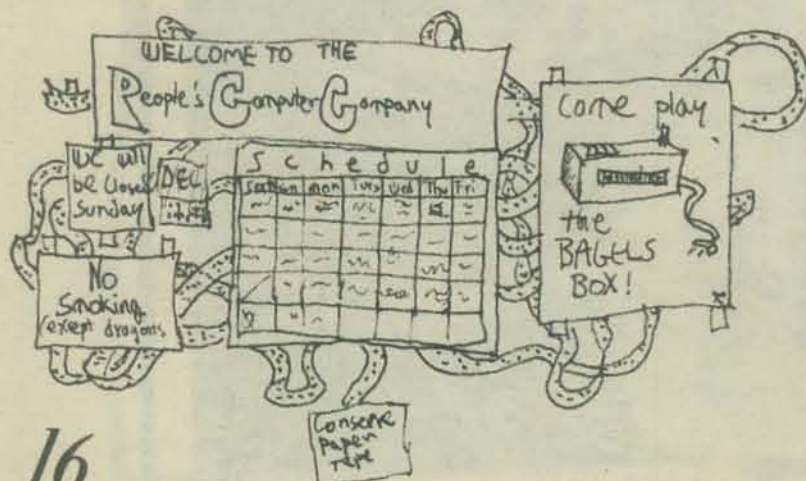 WELCOME TO THE
People's Computer Company
We will
be closed
Sunday
DEC
Schedule
Sat Sun mon Tues Wed Thu Fri
No
Smoking
(except dragons
Come play
the
BAGELS
BOX!
Conserve
paper
tape
16